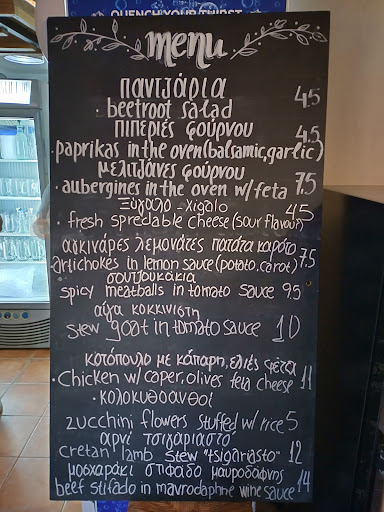 QUENCH YOUR THIRST
menu
παντζάρια
· beetroot salad 4.5
πιπεριές φούρνου
· paprikas in the oven (balsamic, garlic) 4.5
μελιτζάνες φούρνου
· aubergines in the oven w/feta 7.5
Ξύγαλο - Xigalo
fresh spredable cheese (sour flavour) 4.5
αγκινάρες λεμονάτες πατάτα καρότο
· artichokes in lemon sauce (potato, carot) 7.5
σουτζουκάκια
spicy meatballs in tomato sauce 9.5
αίγα κοκκινιστη
stew goat in tomato sauce 10
κοτόπουλο με κάπαρη, ελιές φέτα
· Chicken w/ caper, olives feta cheese 11
· κολοκυθοανθοί
zucchini flowers stuffed w/ rice 5
αρνί τσιγαριαστο
cretan lamb stew "tsigariasto" 12
μοσχαράκι στιφάδο μαυροδάφνης
beef stifado in mavrodaphne wine sauce 14